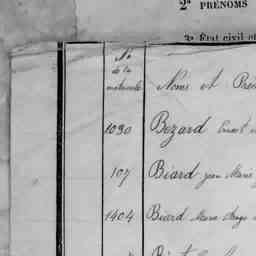 2° PRÉNOMS
3° État civil et
No
de la
matricule
Noms et Pré
1090 Bezard Ernest
107 Biard Jean Marie
1404 Biard Marie Ange